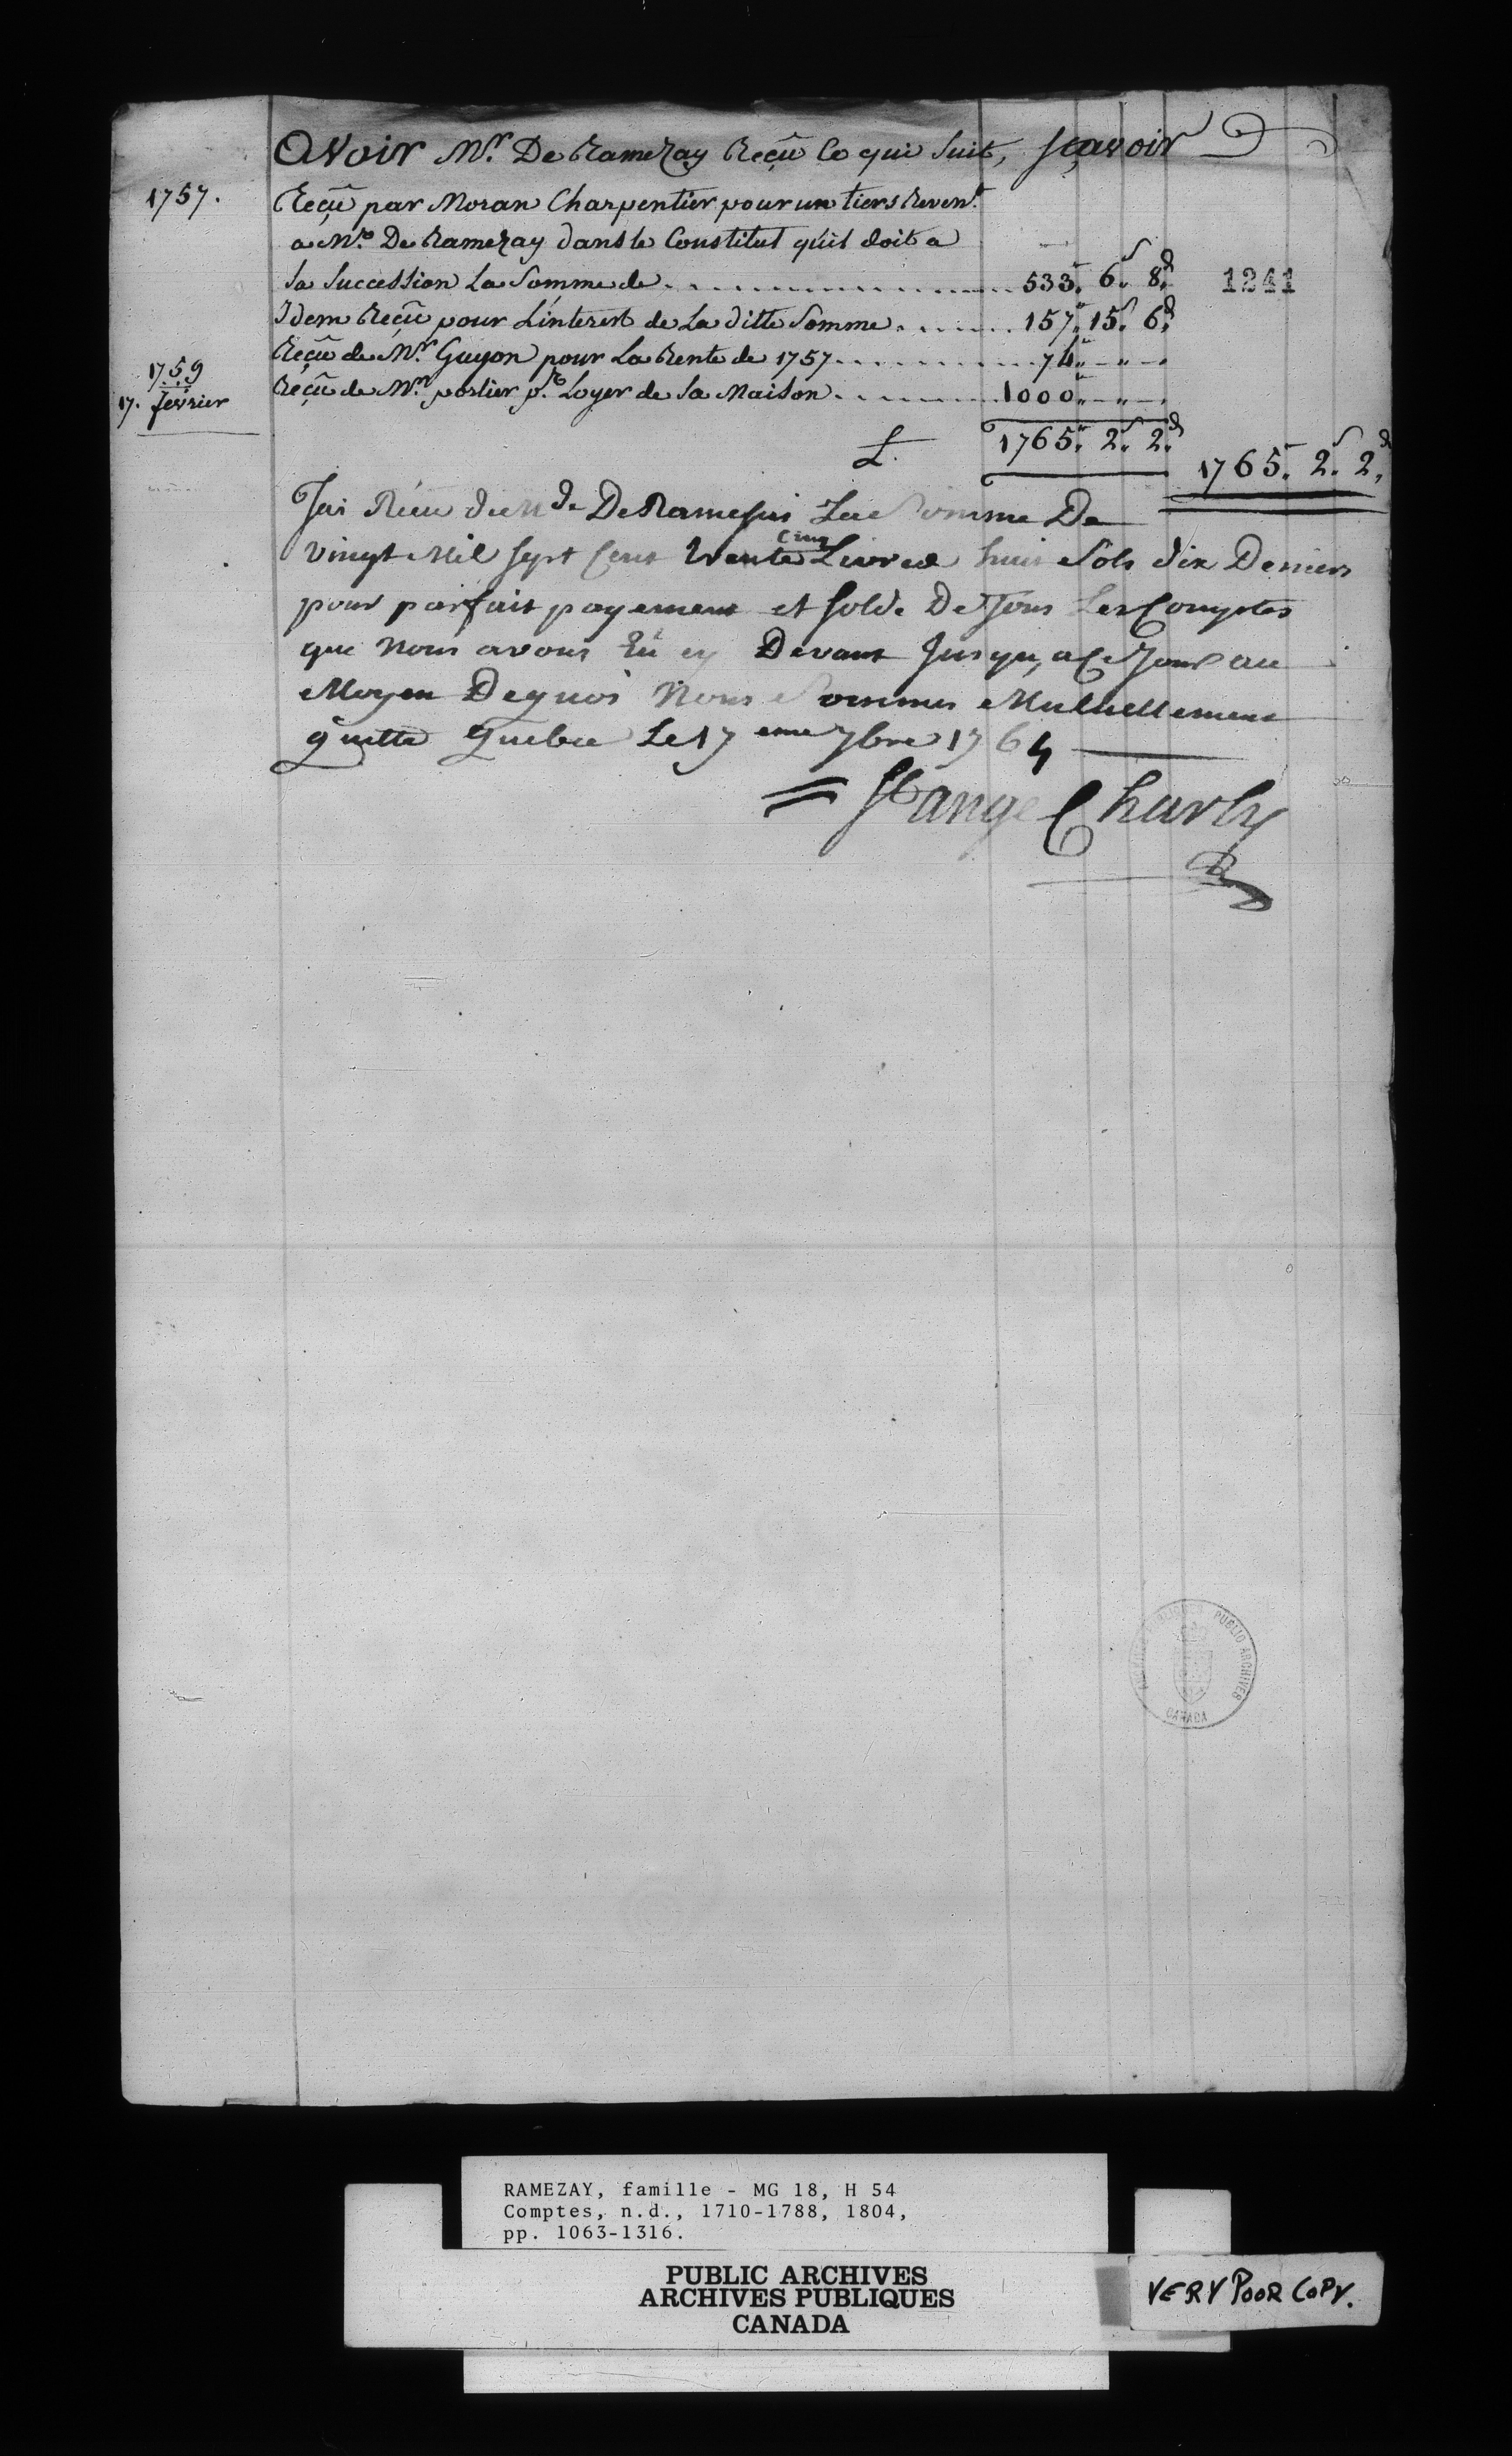 Avoir Mr. De Ramezay Reçû Ce qui Suit, sçavoir
1757. Reçû par Moran Charpentier pour un tiers Reven.t
a Mr. De Ramezay dans le Constitut qu'il doit a
la Succession La Somme de 533.. 6.s 8.d 1241
Idem Reçû pour L'interest de La ditte Somme 157.. 15.s 6.d
Reçû de Mr. Guyon pour La Rente de 1757 74.. - " -
1759
17. fevrier Reçû de Mr. porlier p.r Loyer de la Maison 1000.. - " -
L. 1765.. 2.s 2.d 1765.. 2.s 2.d
Jai Recu de De Ramesai La Somme De
cinq
vingt Mil sept Cent trente Livres huit Sols dix Deniers
pour parfait payement et solde De Tous Les Comptes
que Nous avons Eu cy Devant Jusqu, a Ce Jour au
Moyen Dequoi Nous Sommes Mutuellement
quitte Quebec Le 17 eme 7bre 1764
St ange Charly
PUBLIC ARCHIVES
CANADA
RAMEZAY, famille - MG 18, H 54
Comptes, n.d., 1710-1788, 1804,
pp. 1063-1316.
PUBLIC ARCHIVES
ARCHIVES PUBLIQUES
CANADA
VERY POOR COPY.